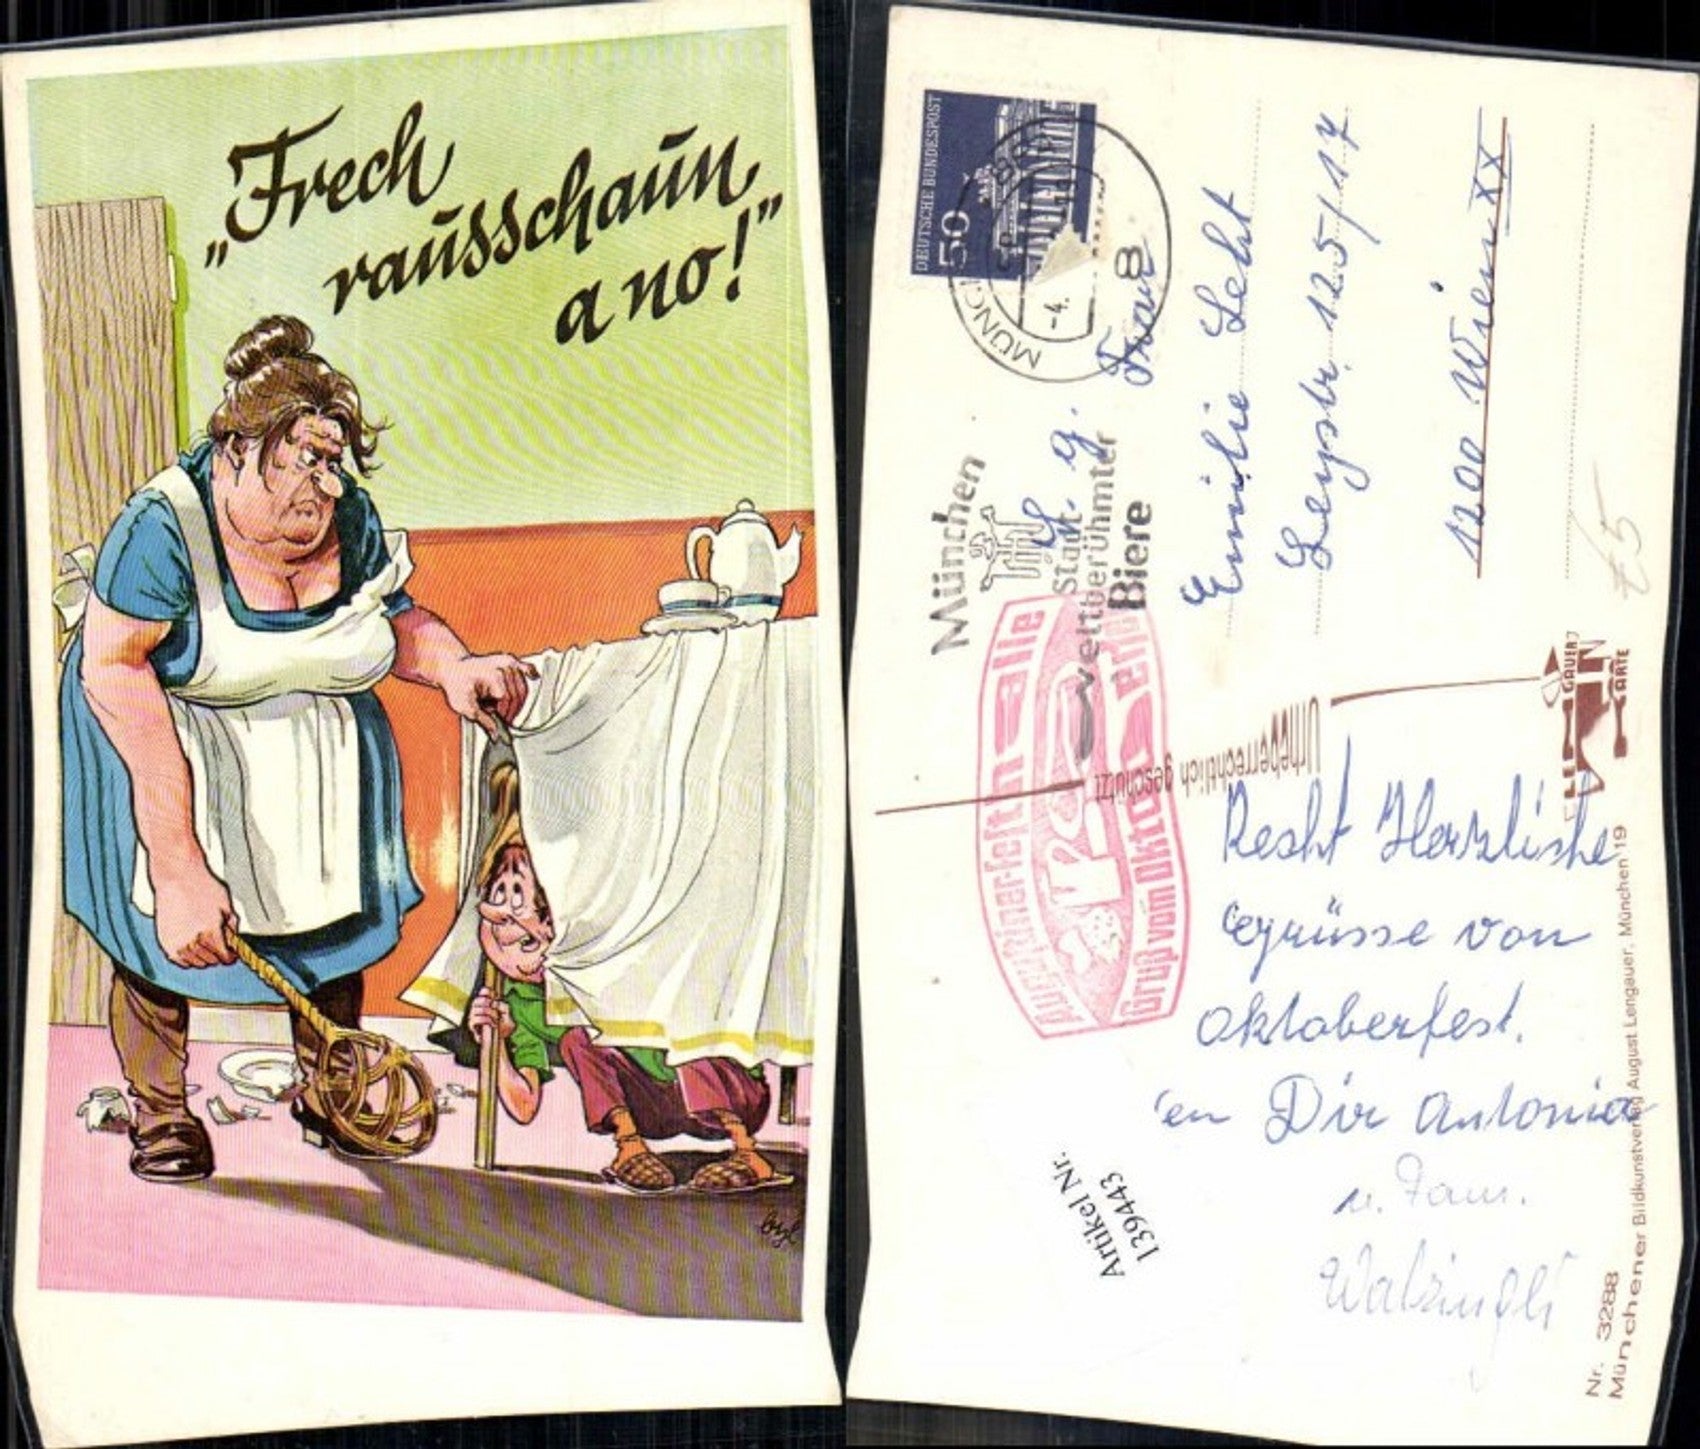 „Frech
rausschaun
a no!”
bzgl
DEUTSCHE BUNDESPOST
50
MÜNCHEN
-4.
8
München
Stadt
weltberühmter
Biere
S. g.
Frau
Emilie
Leystr. 125/17
1200 Wien XX
£5
Augustiner-Festhalle
Gruß vom Oktoberfest
Urheberrechtlich geschützt
LENGAUER
KARTE
Recht Herzliche
Grüsse von
Oktoberfest.
Dir Antonia
u. Fam.
Artikel Nr.
139443
Nr. 3288
Münchener Bildkunstverlag August Lengauer, München 19